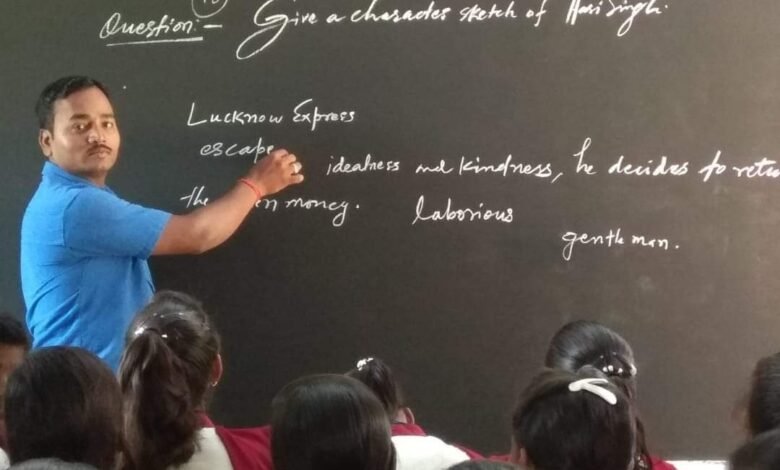 Question:- Give a character sketch of Hari Singh.
Lucknow Express
escape
idealness and kindness, he decides to retu
the en money. laborious
gentleman.